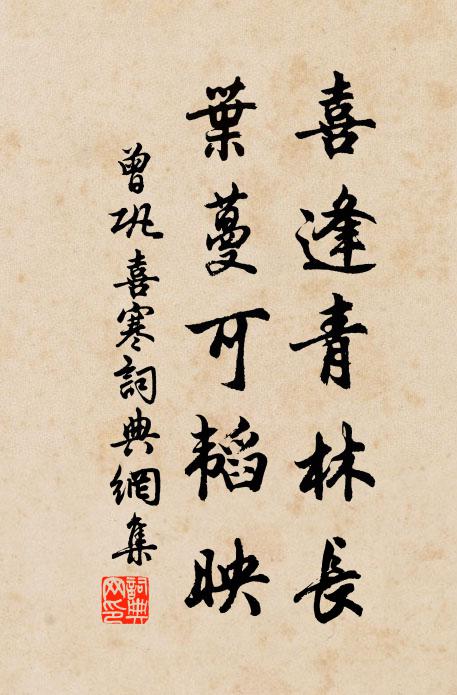 喜逢青林長
葉蔓可韜映
曾巩喜寒詞典網集
詞典
文印